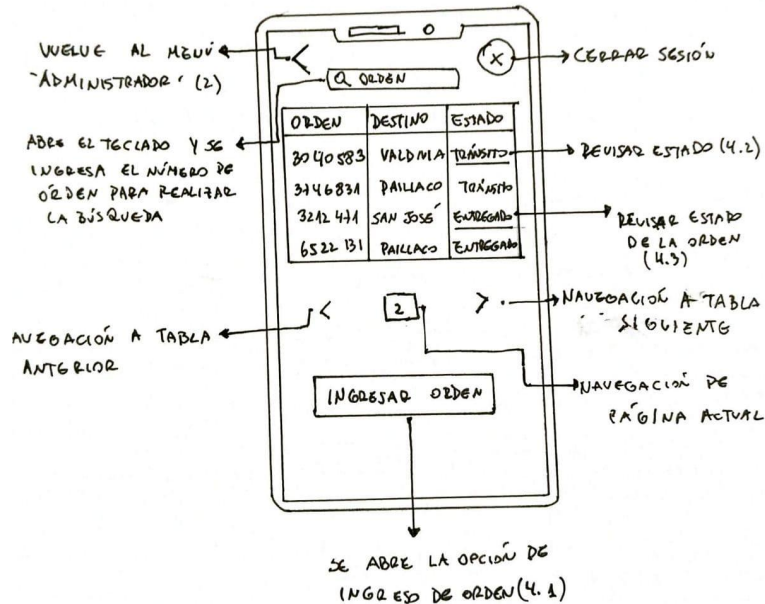 VUELVE AL MENÚ
"ADMINISTRADOR" (2)
CERRAR SESIÓN
X
Q ORDEN
ABRE EL TECLADO Y SE
INGRESA EL NÚMERO DE
ÓRDEN PARA REALIZAR
LA BÚSQUEDA
ORDEN DESTINO ESTADO
3040583 VALDIVIA TRÁNSITO
3746831 PAILLACO TRÁNSITO
3212471 SAN JOSÉ ENTREGADO
6522131 PAILLACO ENTREGADO
REVISAR ESTADO (4.2)
REVISAR ESTADO
DE LA ORDEN
(4.3)
< 2 >
AVEGACIÓN A TABLA
ANTERIOR
NAVEGACIÓN A TABLA
SIGUIENTE
NAVEGACIÓN DE
PÁGINA ACTUAL
INGRESAR ORDEN
SE ABRE LA OPCIÓN DE
INGRESO DE ORDEN (4.1)